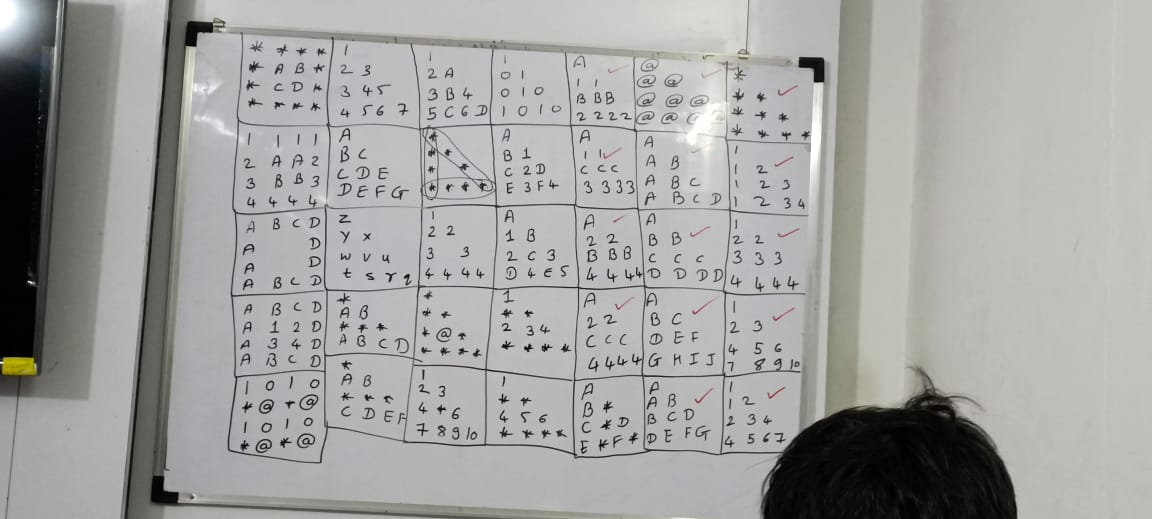 * * * *
* A B *
* C D *
* * * *
1
2 3
3 4 5
4 5 6 7
1
2 A
3 B 4
5 C 6 D
1
0 1
0 1 0
1 0 1 0
A
1 1
B B B
2 2 2 2
@
@ @
@ @ @
@ @ @ @
*
* *
* * *
* * * *
1 1 1 1
2 A A 2
3 B B 3
4 4 4 4
A
B C
C D E
D E F G
*
* *
* *
* * * *
A
B 1
C 2 D
E 3 F 4
A
1 1
C C C
3 3 3 3
A
A B
A B C
A B C D
1
1 2
1 2 3
1 2 3 4
A B C D
A D
A D
A B C D
z
y x
w v u
t s r q
1
2 2
3 3
4 4 4 4
A
1 B
2 C 3
D 4 E 5
A
2 2
B B B
4 4 4 4
A
B B
C C C
D D D D
1
2 2
3 3 3
4 4 4 4
A B C D
A 1 2 D
A 3 4 D
A B C D
*
A B
* * *
A B C D
*
* *
* @ *
* * * *
1
* *
2 3 4
* * * *
A
2 2
C C C
4 4 4 4
A
B C
D E F
G H I J
1
2 3
4 5 6
7 8 9 10
1 0 1 0
* @ * @
1 0 1 0
* @ * @
*
A B
* * *
C D E F
1
2 3
4 * 6
7 8 9 10
1
* *
4 5 6
* * * *
A
B *
C * D
E * F *
A
A B
B C D
D E F G
1
1 2
2 3 4
4 5 6 7